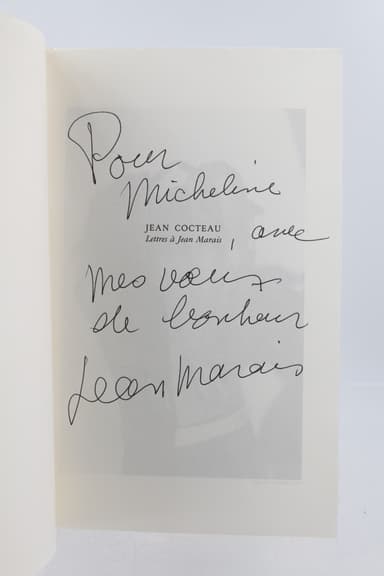 Pour
Micheline
JEAN COCTEAU
Lettres à Jean Marais
, avec
mes vœux
de bonheur
Jean Marais